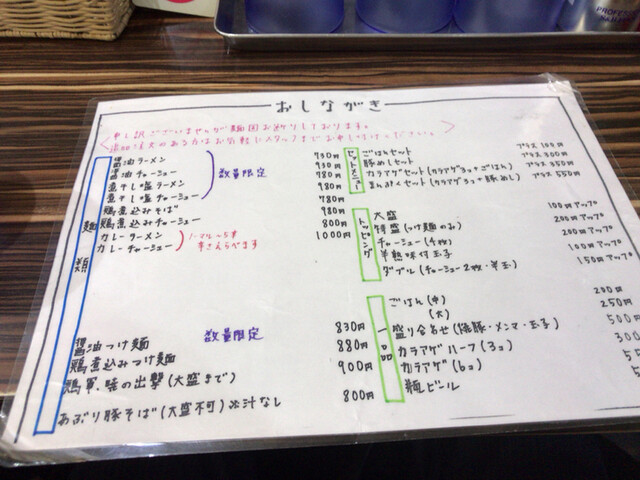 おしながき
申し訳ございませんが麺固お断りしております。
追加注文のある方はお気軽にスタッフまでお申し付けください。
麺類
醤油ラーメン
醤油チャーシュー
煮干し塩ラーメン
煮干し塩チャーシュー
数量限定
鶏煮込みそば
鶏煮込みチャーシュー
カレーラーメン
カレーチャーシュー
ノーマル〜5辛
辛さえらべます
750円
950円
780円
980円
780円
980円
800円
1000円
数量限定
醤油つけ麺 830円
鶏煮込みつけ麺 880円
鶏軍.味の出撃(大盛まで) 900円
あぶり豚そば(大盛不可)※汁なし 800円
セットメニュー
ごはんセット プラス100円
豚めしセット プラス300円
カラアゲセット(カラアゲ3コ+ごはん) プラス350円
まんぷくセット(カラアゲ3コ+豚めし) プラス550円
トッピング
大盛 100円アップ
特盛(つけ麺のみ) 200円アップ
チャーシュー(4枚) 200円アップ
半熟味付玉子 100円アップ
ダブル(チャーシュー2枚・半玉) 150円アップ
一品
ごはん(中) 200円
(大) 250円
盛り合わせ(豚・メンマ・玉子) 500円
カラアゲハーフ(3コ) 300
カラアゲ(6コ)
瓶ビール